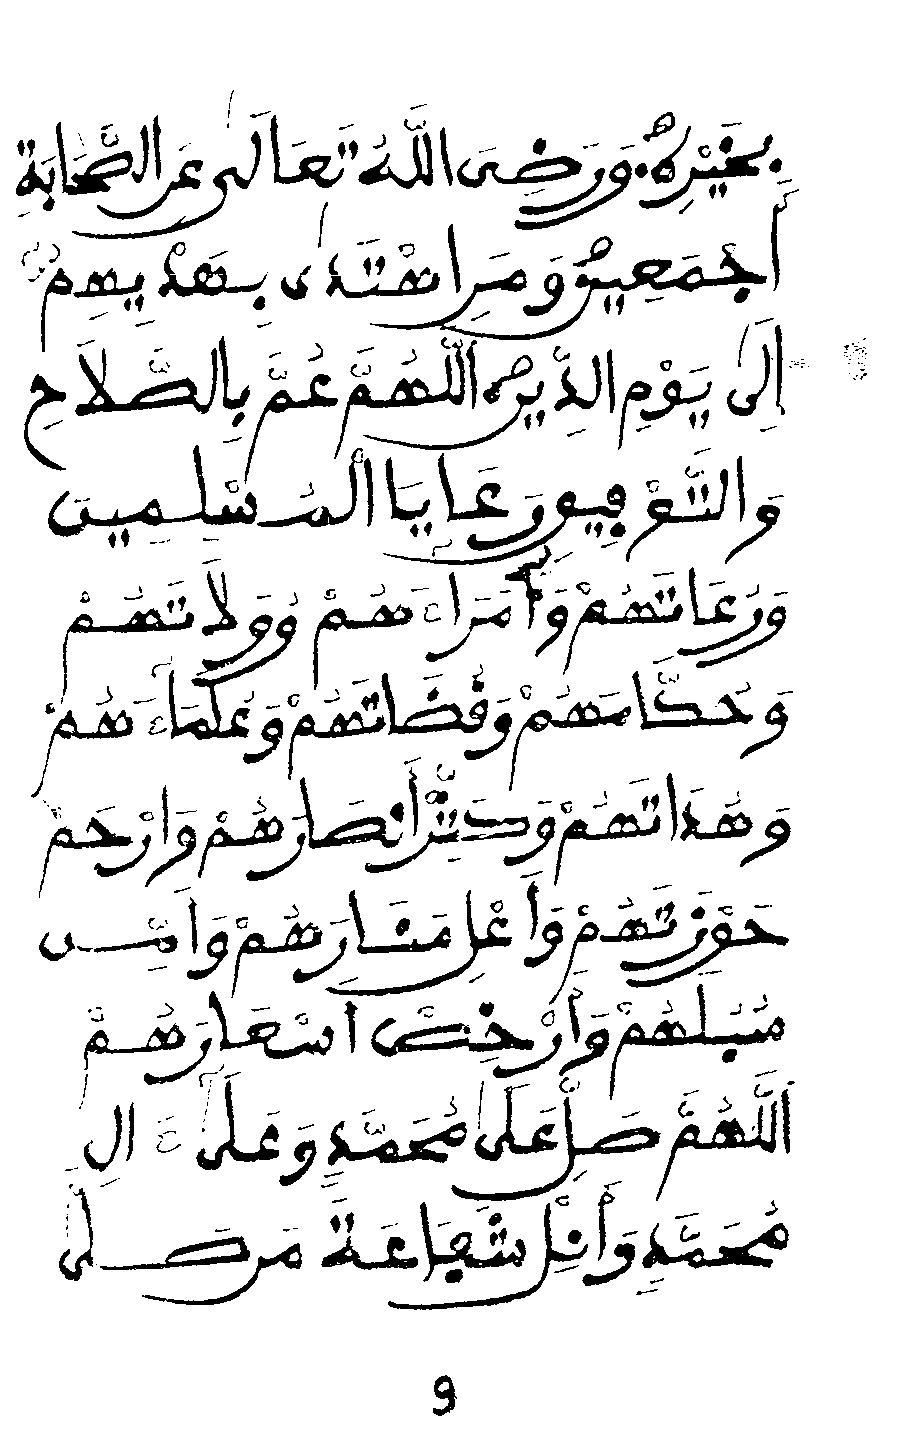 بِخَيْرِهِ وَرَضِىَ اللَّهُ تَعَالَى عَنِ الصَّحَابَةِ
أَجْمَعِينَ وَمَنِ اهْتَدَى بِهَدْيِهِمْ
إِلَى يَوْمِ الدِّينِ اللَّهُمَّ عُمَّ بِالصَّلَاحِ
وَالتَّوْفِيقِ رَعَايَا الْمُسْلِمِينَ
وَرُعَاتَهُمْ وَأُمَرَاءَهُمْ وَوُلَاتَهُمْ
وَحُكَّامَهُمْ وَقُضَاتَهُمْ وَعُلَمَاءَهُمْ
وَهُدَاتَهُمْ وَكَثِّرْ أَنْصَارَهُمْ وَارْحَمْ
حَوْزَتَهُمْ وَأَعْلِ مَنَارَهُمْ وَأَمِّنْ
سُبُلَهُمْ وَأَرْخِصْ أَسْعَارَهُمْ
اللَّهُمَّ صَلِّ عَلَى مُحَمَّدٍ وَعَلَى ءَالِ
مُحَمَّدٍ وَأَنِلْ شَفَاعَةَ مَن صَلَّى
9